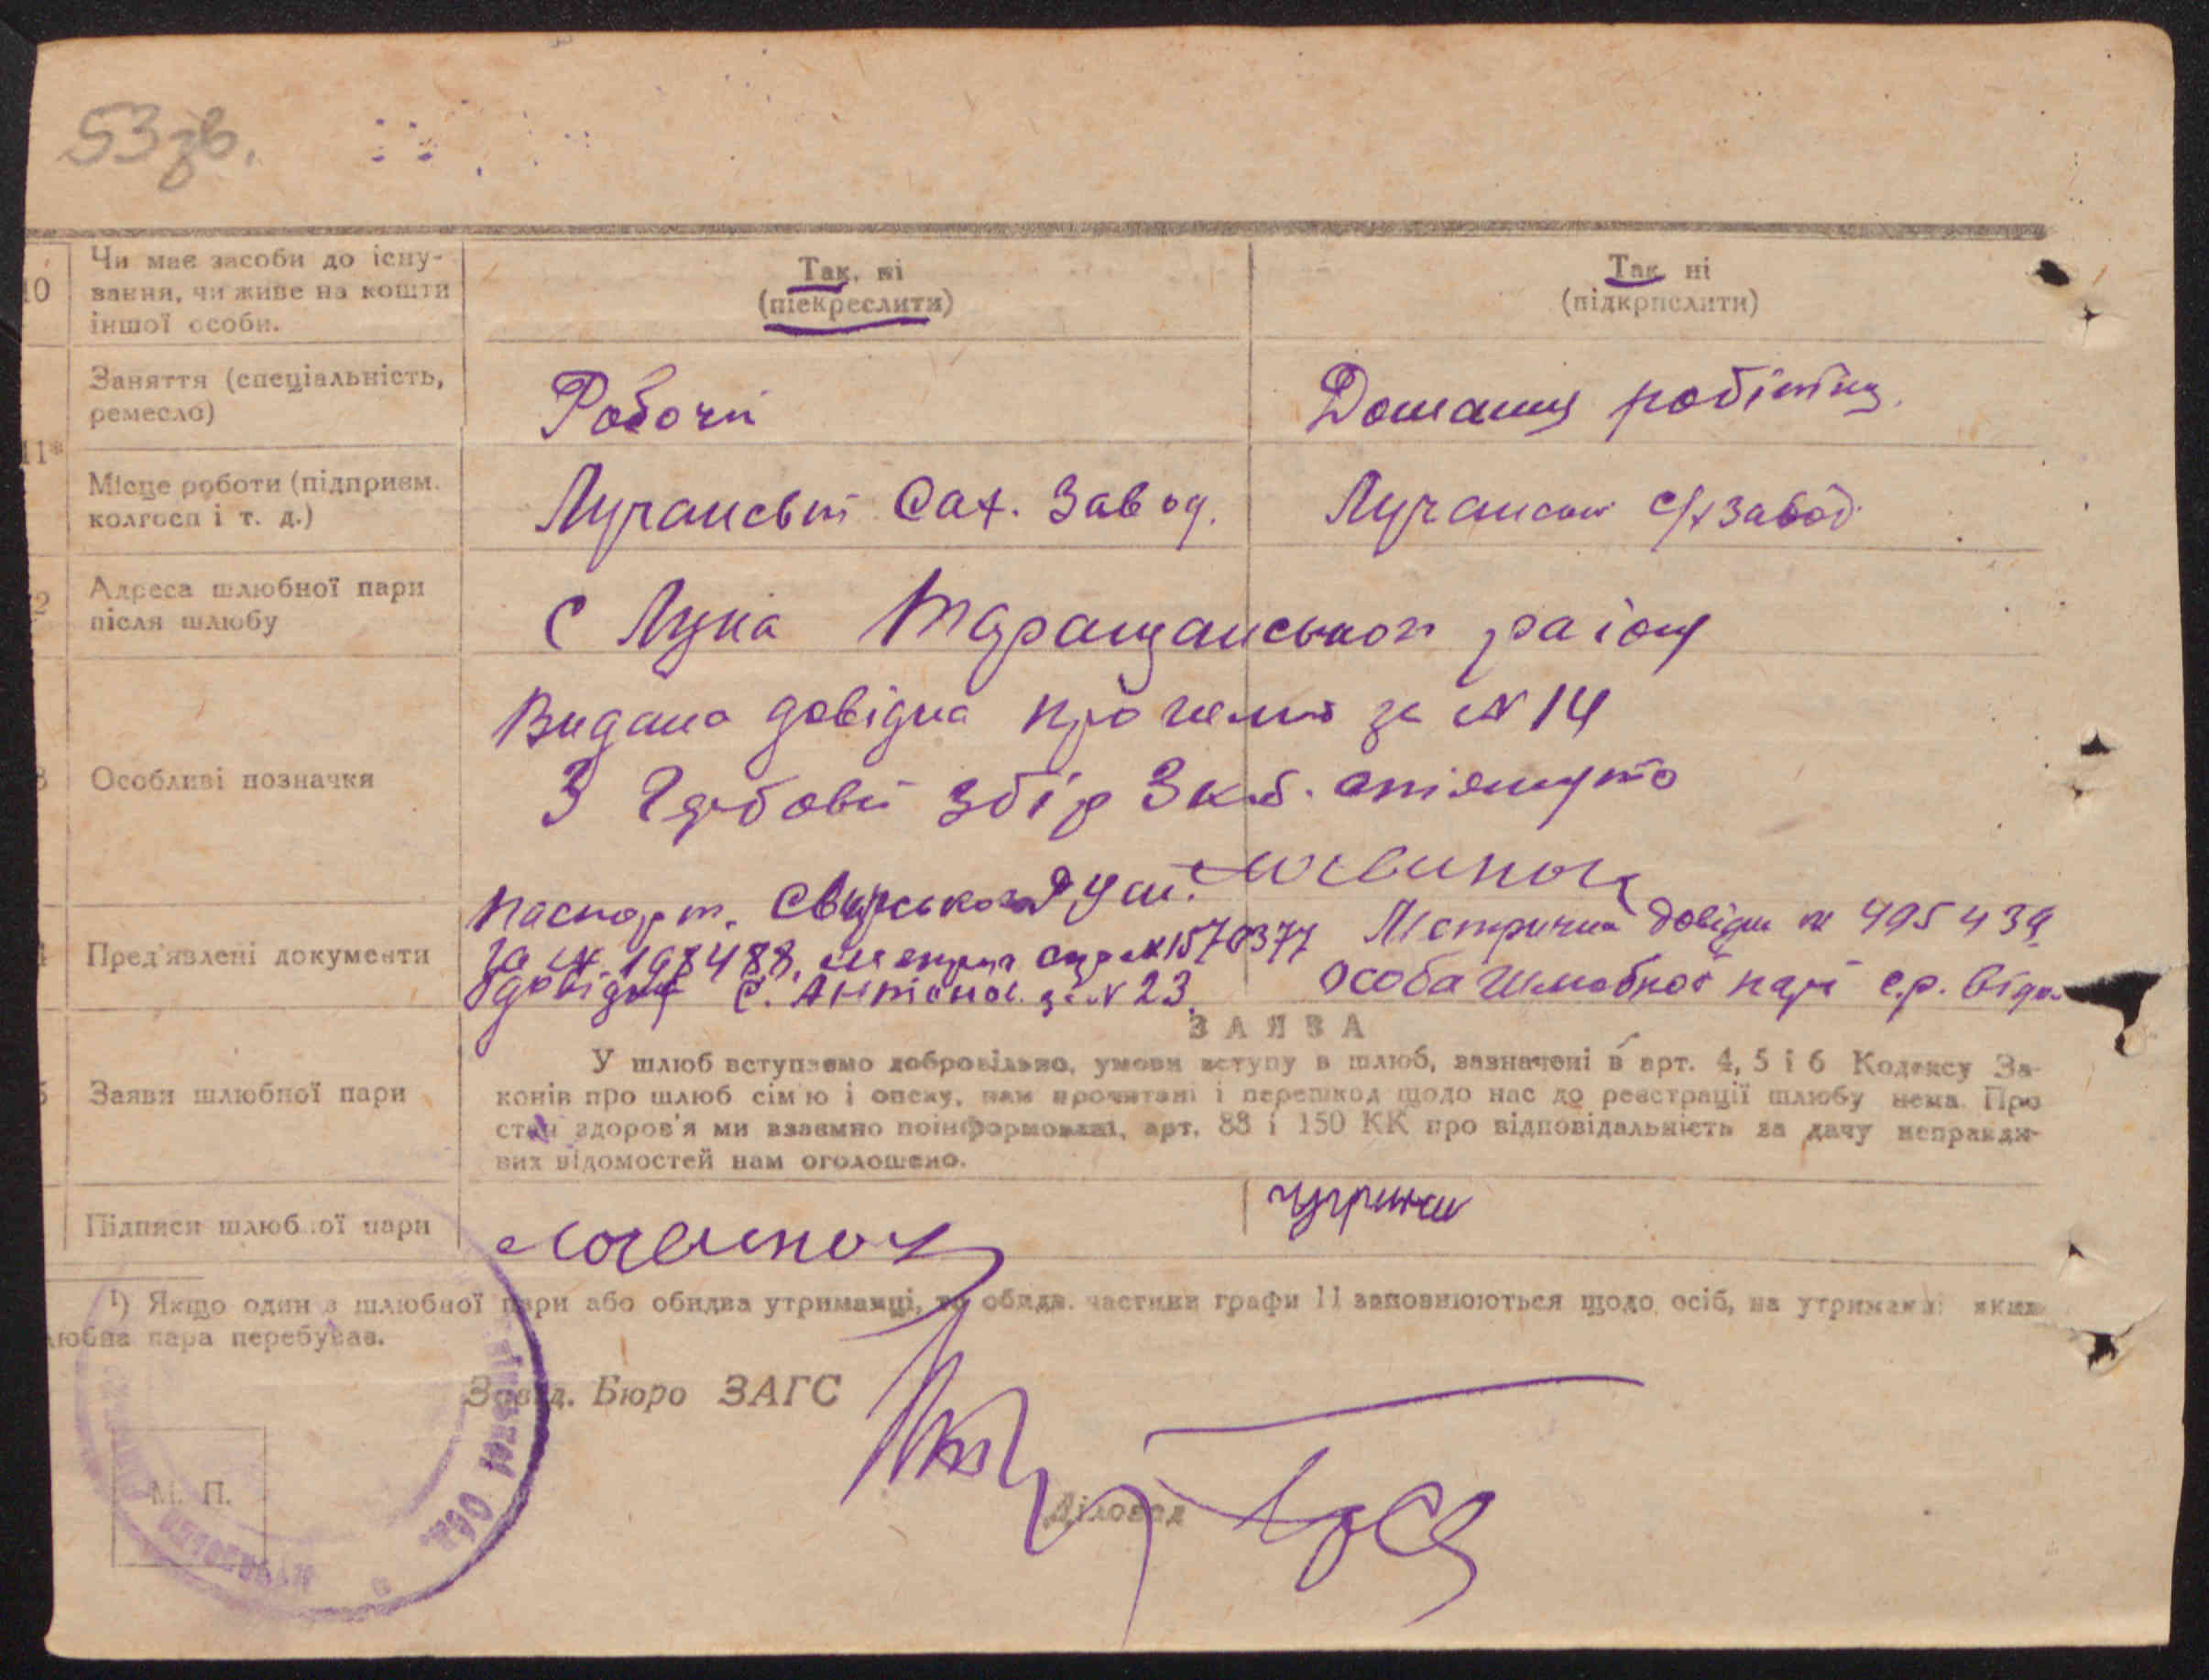 53 зв.
10 Чи має засоби до існу-
вання, чи живе на кошти
іншої особи.
Так, ні
(піекреслити)
Так ні
(підкрпслити)
Заняття (спеціальність,
ремесло)
Робочи
Домашня робітниц.
11*
Місце роботи (підприєм.
колгосп і т. д.)
Лучанськи Сах. Завод.
Лучанськи с/х завод.
2 Адреса шлюбної пари
після шлюбу
с Лука Таращанського району
Особливі позначки
Видано довідка про шлюб за № 14
З Гербови збір 3 крб. стягнуто
Пред'явлені документи
Паспорт. Свирського
за № 198488. № 1570377
довідка с. Антонов за № 23.
Метрична довідка № 495439
особа шлюбної парі с.р.
ЗАЯВА
Заяви шлюбної пари
У шлюб вступаємо добровільно, умови вступу в шлюб, зазначені в арт. 4, 5 і 6 Кодексу За-
конів про шлюб сім'ю і опеку, нам прочитані і перешкод щодо нас до реєстрації шлюбу нема. Про
стан здоров'я ми взаємно поінформовані, арт. 88 і 150 КК про відповідальність за дачу неправди-
вих відомостей нам оголошено.
Підписи шлюбної пари
1) Якщо один з шлюбної пари або обидва утриманці, то обидв. частини графи 11 заповнюються щодо осіб, на утриманні яких
любна пара перебував.
Завід. Бюро ЗАГС
М. П.
Діловод